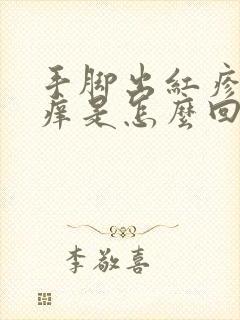 手脚出紅疹
痒是怎麼回
李敬喜